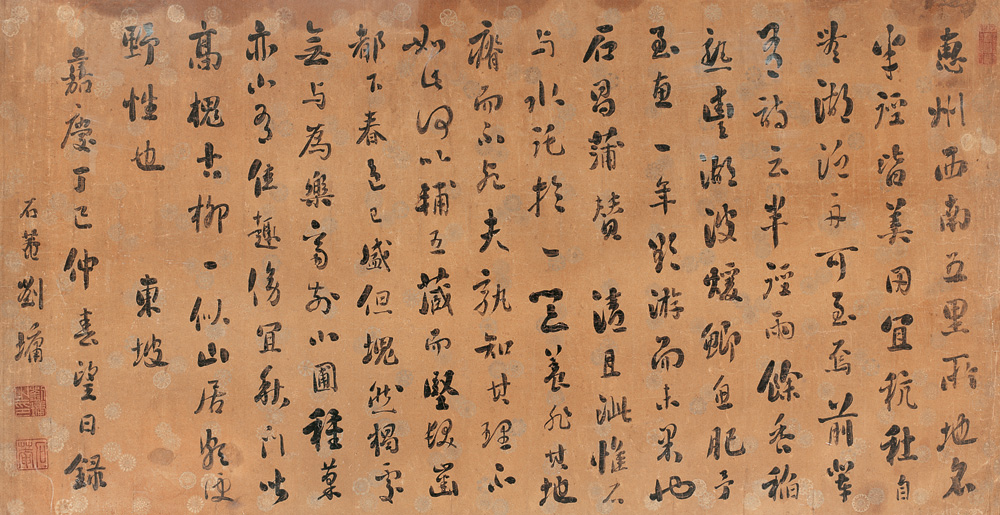 惠州西南五里所地名
半逕皆美田宜秔秫自
豐湖泛舟可至焉前輩
有詩云半逕雨餘香稻
熟豐湖波煖鯽魚肥予
至惠一年欲游而未果也
石菖蒲贊 清且泚惟石
与水託於一器養非其地
瘠而不死夫孰知其理不
如此何以輔五藏而堅髮齒
都下春色已盛但塊然獨處
無与為樂齋前小圃種菓
亦小有佳趣傍宜秋門皆
高槐古柳一似山居頗便
野性也 東坡
嘉慶丁巳仲春望日録
石菴劉墉